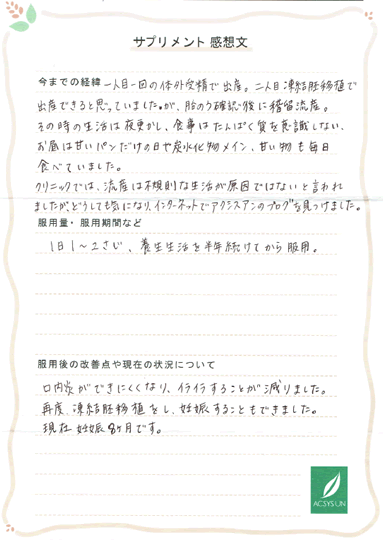 サプリメント 感想文
今までの経緯 一人目一回の体外受精で出産。二人目凍結胚移植で
出産できると思っていましたが、胎のう確認後に稽留流産。
その時の生活は夜更かし、食事はたんぱく質を意識しない、
お昼は甘いパンだけの日や炭水化物メイン、甘い物も毎日
食べていました。
クリニックでは、流産は不規則な生活が原因ではないと言われ
ましたが、どうしても気になり、インターネットでアクシスアンのブログを見つけました。
服用量・服用期間など
1日1〜2さじ、養生生活を半年続けてから服用。
服用後の改善点や現在の状況について
口内炎ができにくくなり、イライラすることが減りました。
再度、凍結胚移植をし、妊娠することもできました。
現在妊娠8ヶ月です。
ACSYS UN